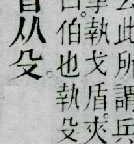 此所謂兵
執戈盾夾
伯也執殳
从殳。